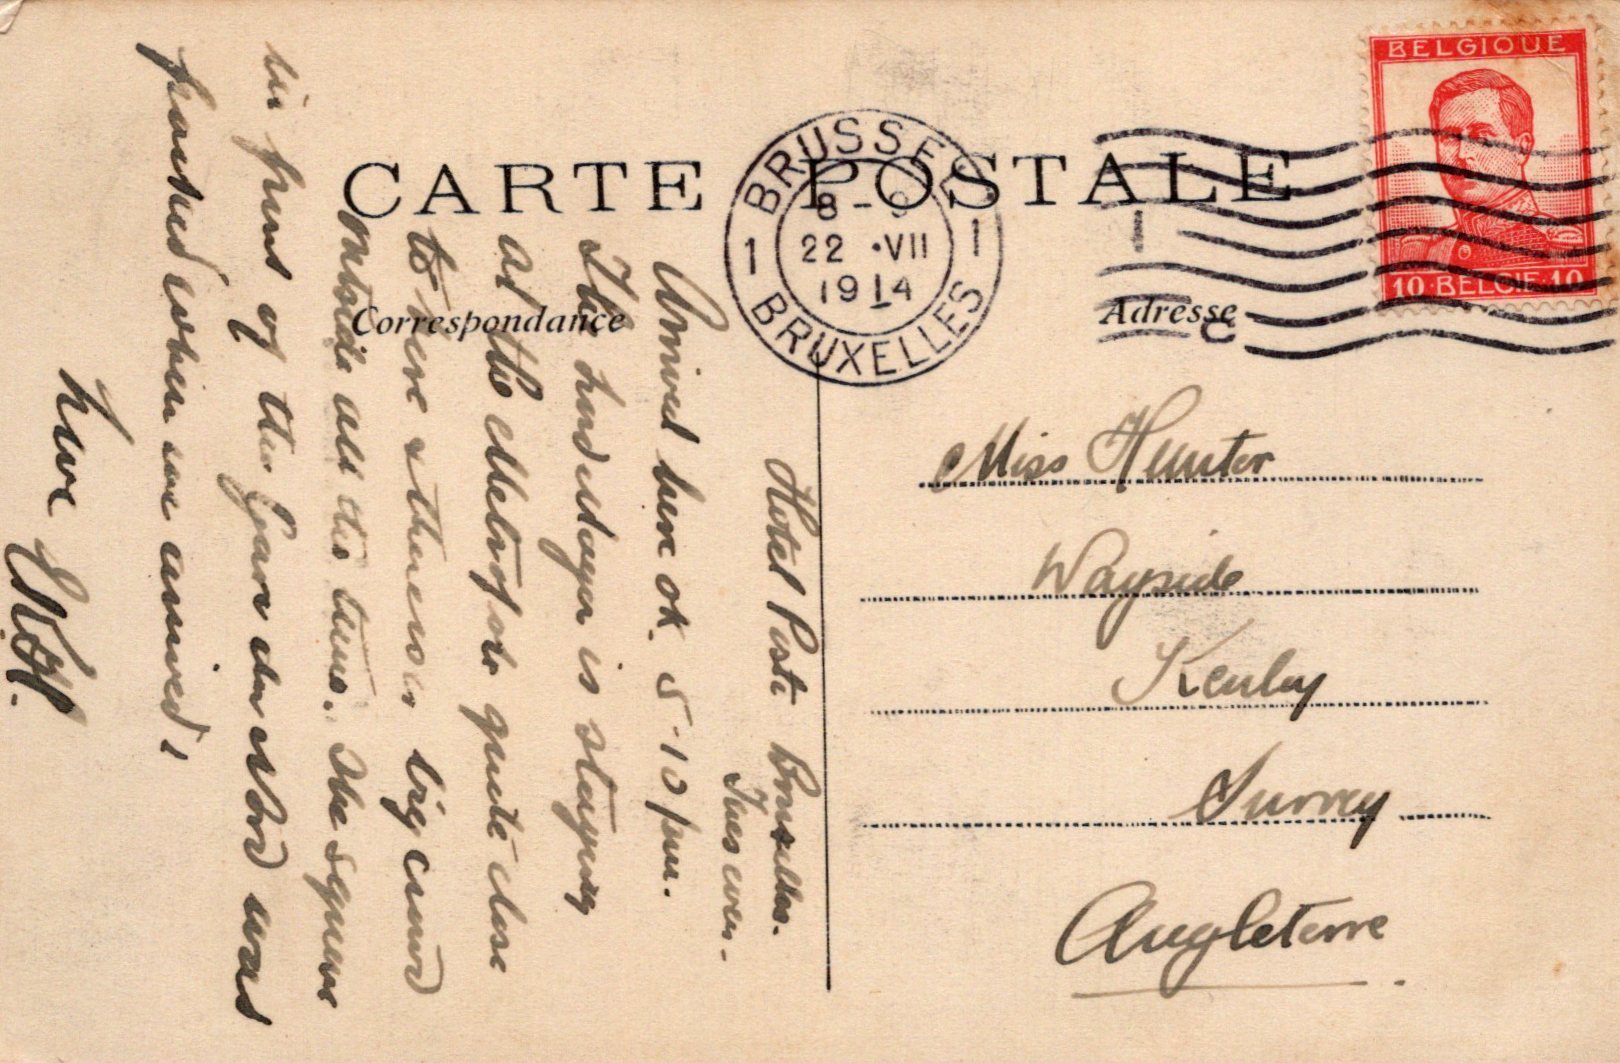 CARTE POSTALE
Correspondance
Adresse
BELGIQUE
10 BELGIË 10
BRUSSEL
1 1
8-9
22 ·VII
1914
BRUXELLES
Hotel Poste Bruxelles.
Tues even.
Arrived here ok. 5-10 pm.
The Lindemeyer is staying
at the Metropole quite close
to here & there is a big crowd
outside all the time. The square
in front of the Gare du Nord was
packed when we arrived!
Love
Miss Hunter
Wayside
Kenley
Surrey
Angleterre